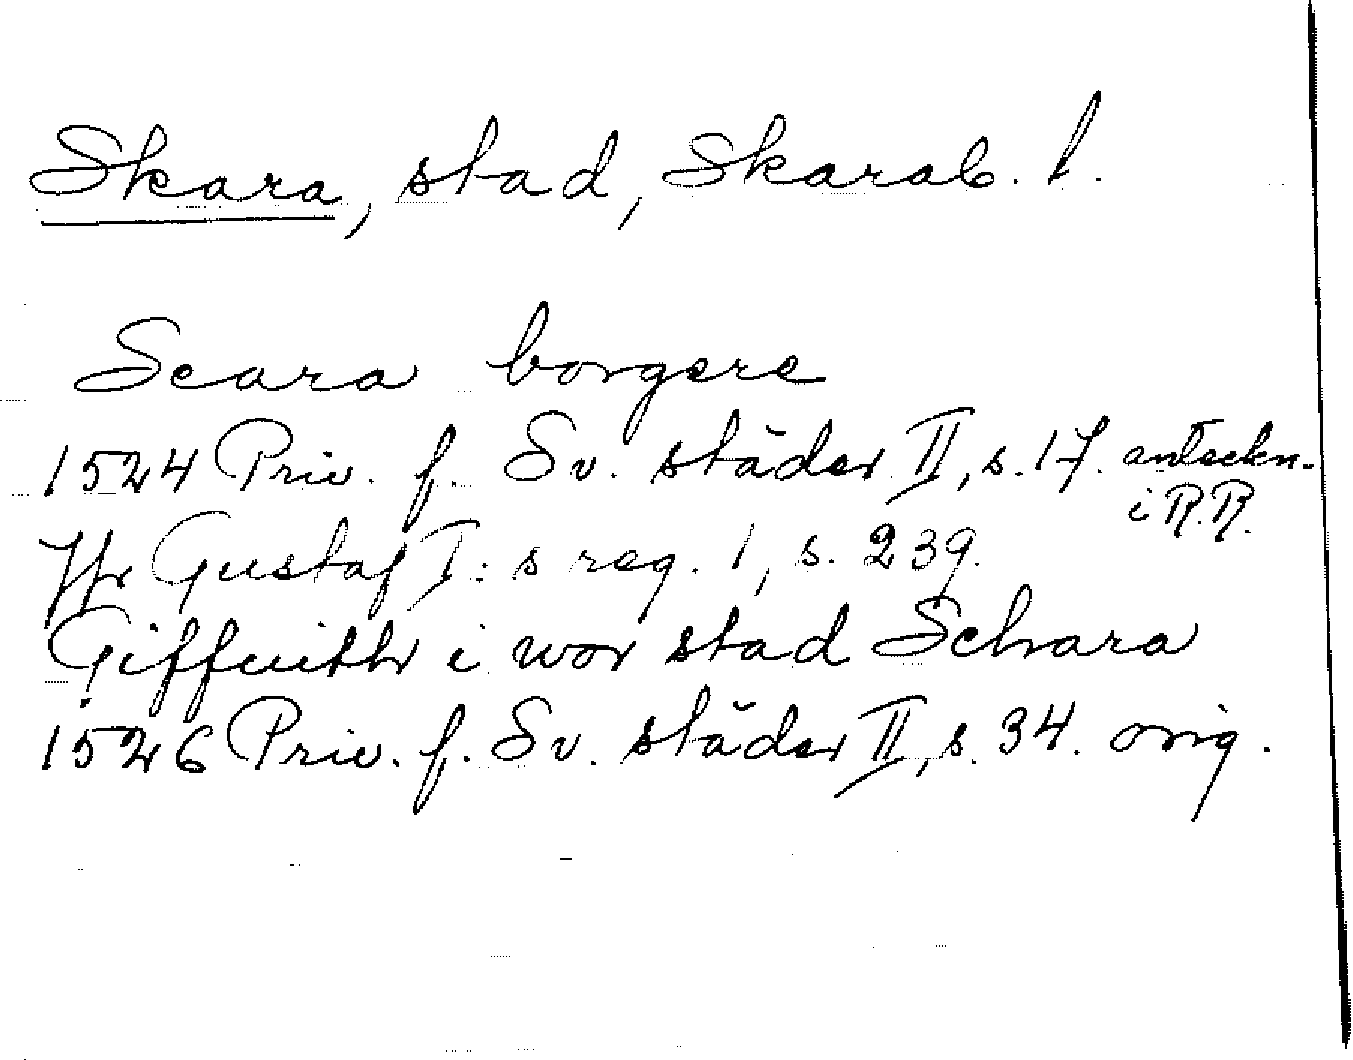 Skara, stad, Skarab. l.
Scara borgere
1524 Priv. f. Sv. städer II, s. 17. anteckn.
i R.R.
Jfr Gustaf I:s reg. 1, s. 239.
Giffuith i wor stad Schara
1526 Priv. f. Sv. städer II, s. 34. orig.